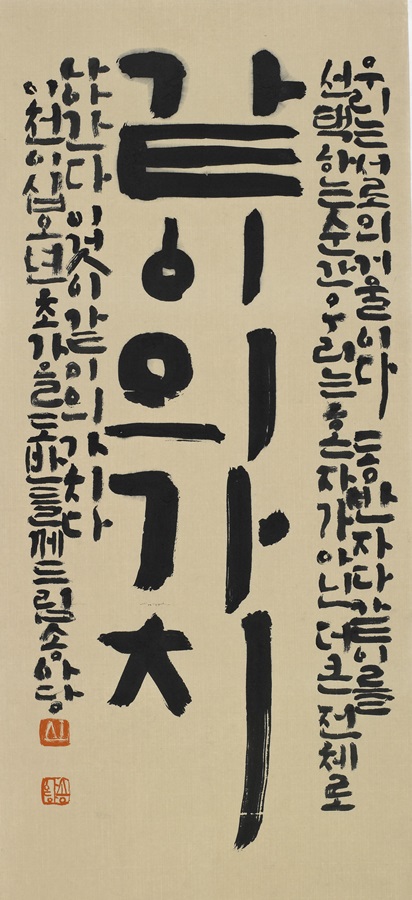 우리는 서로의 거울이다 동반자다 같이를
선택하는 순간 우리는 혼자가 아닌 더 큰 전체로
같이의 가치
나아간다 이것이 같이의 가치다
이천이십오년 초가을 도반들께 드림 송아당